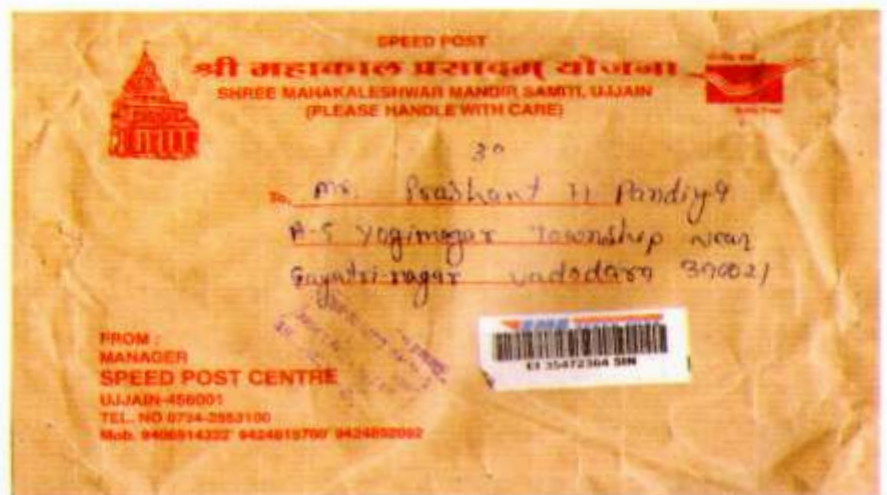 SPEED POST
श्री महाकाल प्रसादम् योजना
SHREE MAHAKALESHWAR MANDIR SAMITI, UJJAIN
(PLEASE HANDLE WITH CARE)
30
To, Mr. Prashant H Pandiya
A-5 Yoginagar Township near
Gayatri nagar vadodara 390021
EI 35472364 5IN
FROM :
MANAGER
SPEED POST CENTRE
UJJAIN-456001
TEL. NO 0734-2553100
Mob.